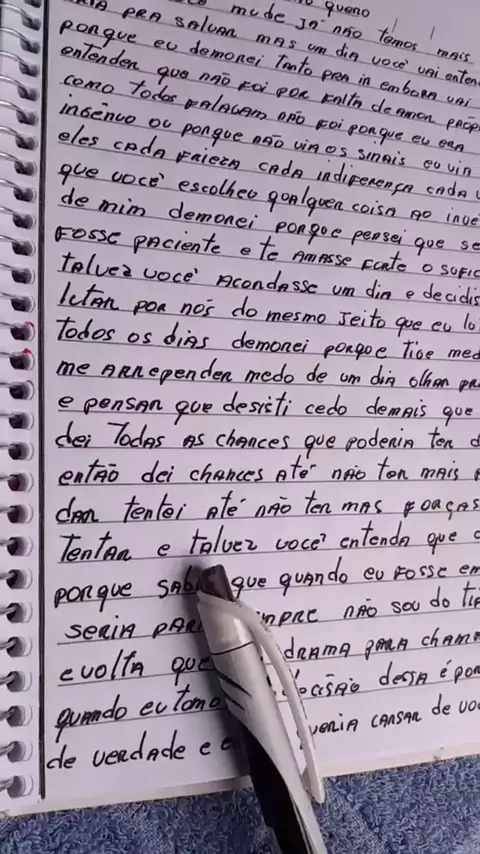 mude já não temos mais
pra salvar mas um dia você vai enten
porque eu demorei tanto pra ir embora vai
entender que não foi por falta de amor próp
como todos falavam não foi porque eu era
ingênuo ou porque não via os sinais eu vin
eles cada frieza cada indiferença cada v
que você escolheu qualquer coisa ao inve
de mim demorei porque pensei que se
fosse paciente e te amasse forte o sufic
talvez você acordasse um dia e decidis
lutar por nós do mesmo jeito que eu lu
todos os dias demorei porque tive med
me arrepender medo de um dia olhar pr
e pensar que desisti cedo demais que
dei todas as chances que poderia ter d
então dei chances até não ter mais
dar tentei até não ter mas forças
tentar e talvez você entenda que
porque sabi que quando eu fosse em
seria par mpre não sou do ti
evolta que drama para chama
quando eu tomo decisão dessa é por
de verdade e e veria cansar de vo